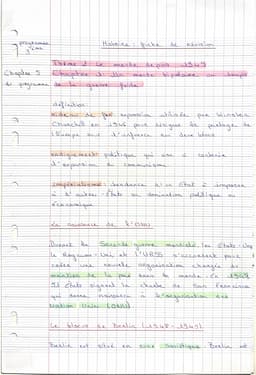 programme
3ème
Histoire : fiche de révision
Thème 2 Le monde depuis 1945
Chapitre 5
du programme
Chapitre 1 Un monde bipolaire au temps
de la guerre froide
définition
rideau de fer expression utilisée par Winston
Churchill en 1946 pour désigner le partage de
l'Europe d'influence en deux blocs
endiguement politique qui vise à contenir
l'expansion du communisme
impérialisme tendance d'un État à imposer
à d'autres États sa domination politique ou
économique
La naissance de l'ONU
Durant la Seconde guerre mondiale les États-Unis
le Royaume-Uni et l'URSS s'accordent pour
créer une nouvelle organisation chargée du
maintien de la paix dans le monde. En 1945
51 États signent la charte de San Francisco
qui donne naissance à l'organisation des
Nation Unies (ONU)
Le blocus de Berlin (1948-1949)
Berlin est situé en zone soviétique Berlin est